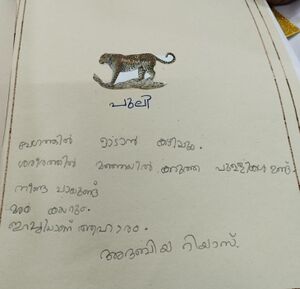 പുലി
വേഗത്തിൽ ഓടാൻ കഴിയും.
ശരീരത്തിൽ മഞ്ഞയിൽ കറുത്ത പുള്ളികൾ ഉണ്ട്.
നീണ്ട വാലുണ്ട്
മരം കയറും.
ഇറച്ചിയാണ് ആഹാരം.
റിയാസ്.